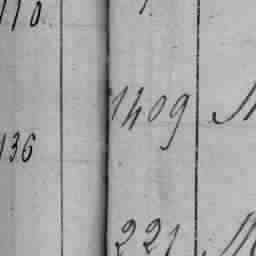 110
1409
136
221